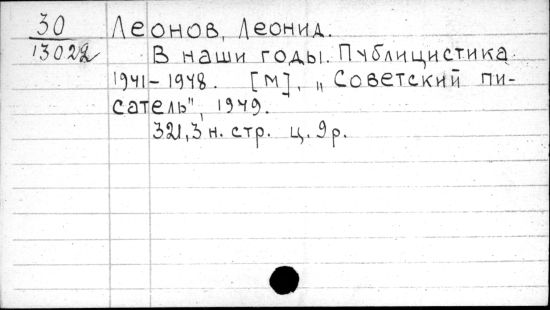 30
13022
Леонов, Леонид.
В наши годы. Публицистика
1941-1948. [М], „Советский пи-
сатель", 1949.
321,3 н. стр. ц. 9 р.